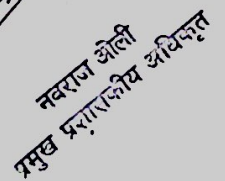 नवराज ओली
प्रमुख प्रशासकीय अधिकृत